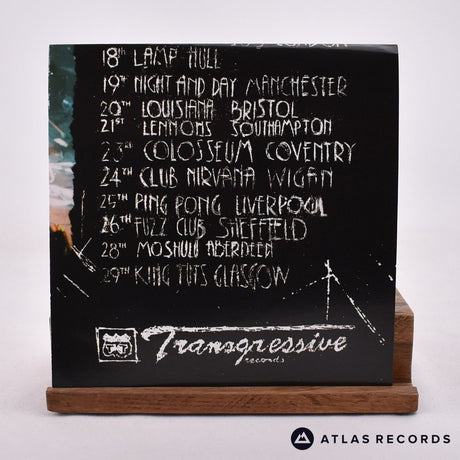 18TH LAMP HULL
19TH NIGHT AND DAY MANCHESTER
20TH LOUISIANA BRISTOL
21ST LENNONS SOUTHAMPTON
23RD COLOSSEUM COVENTRY
24TH CLUB NIRVANA WIGAN
25TH PING PONG LIVERPOOL
26TH FUZZ CLUB SHEFFIELD
28TH MOSHULU ABERDEEN
29TH KING TUTS GLASGOW
Transgressive
records
ATLAS RECORDS